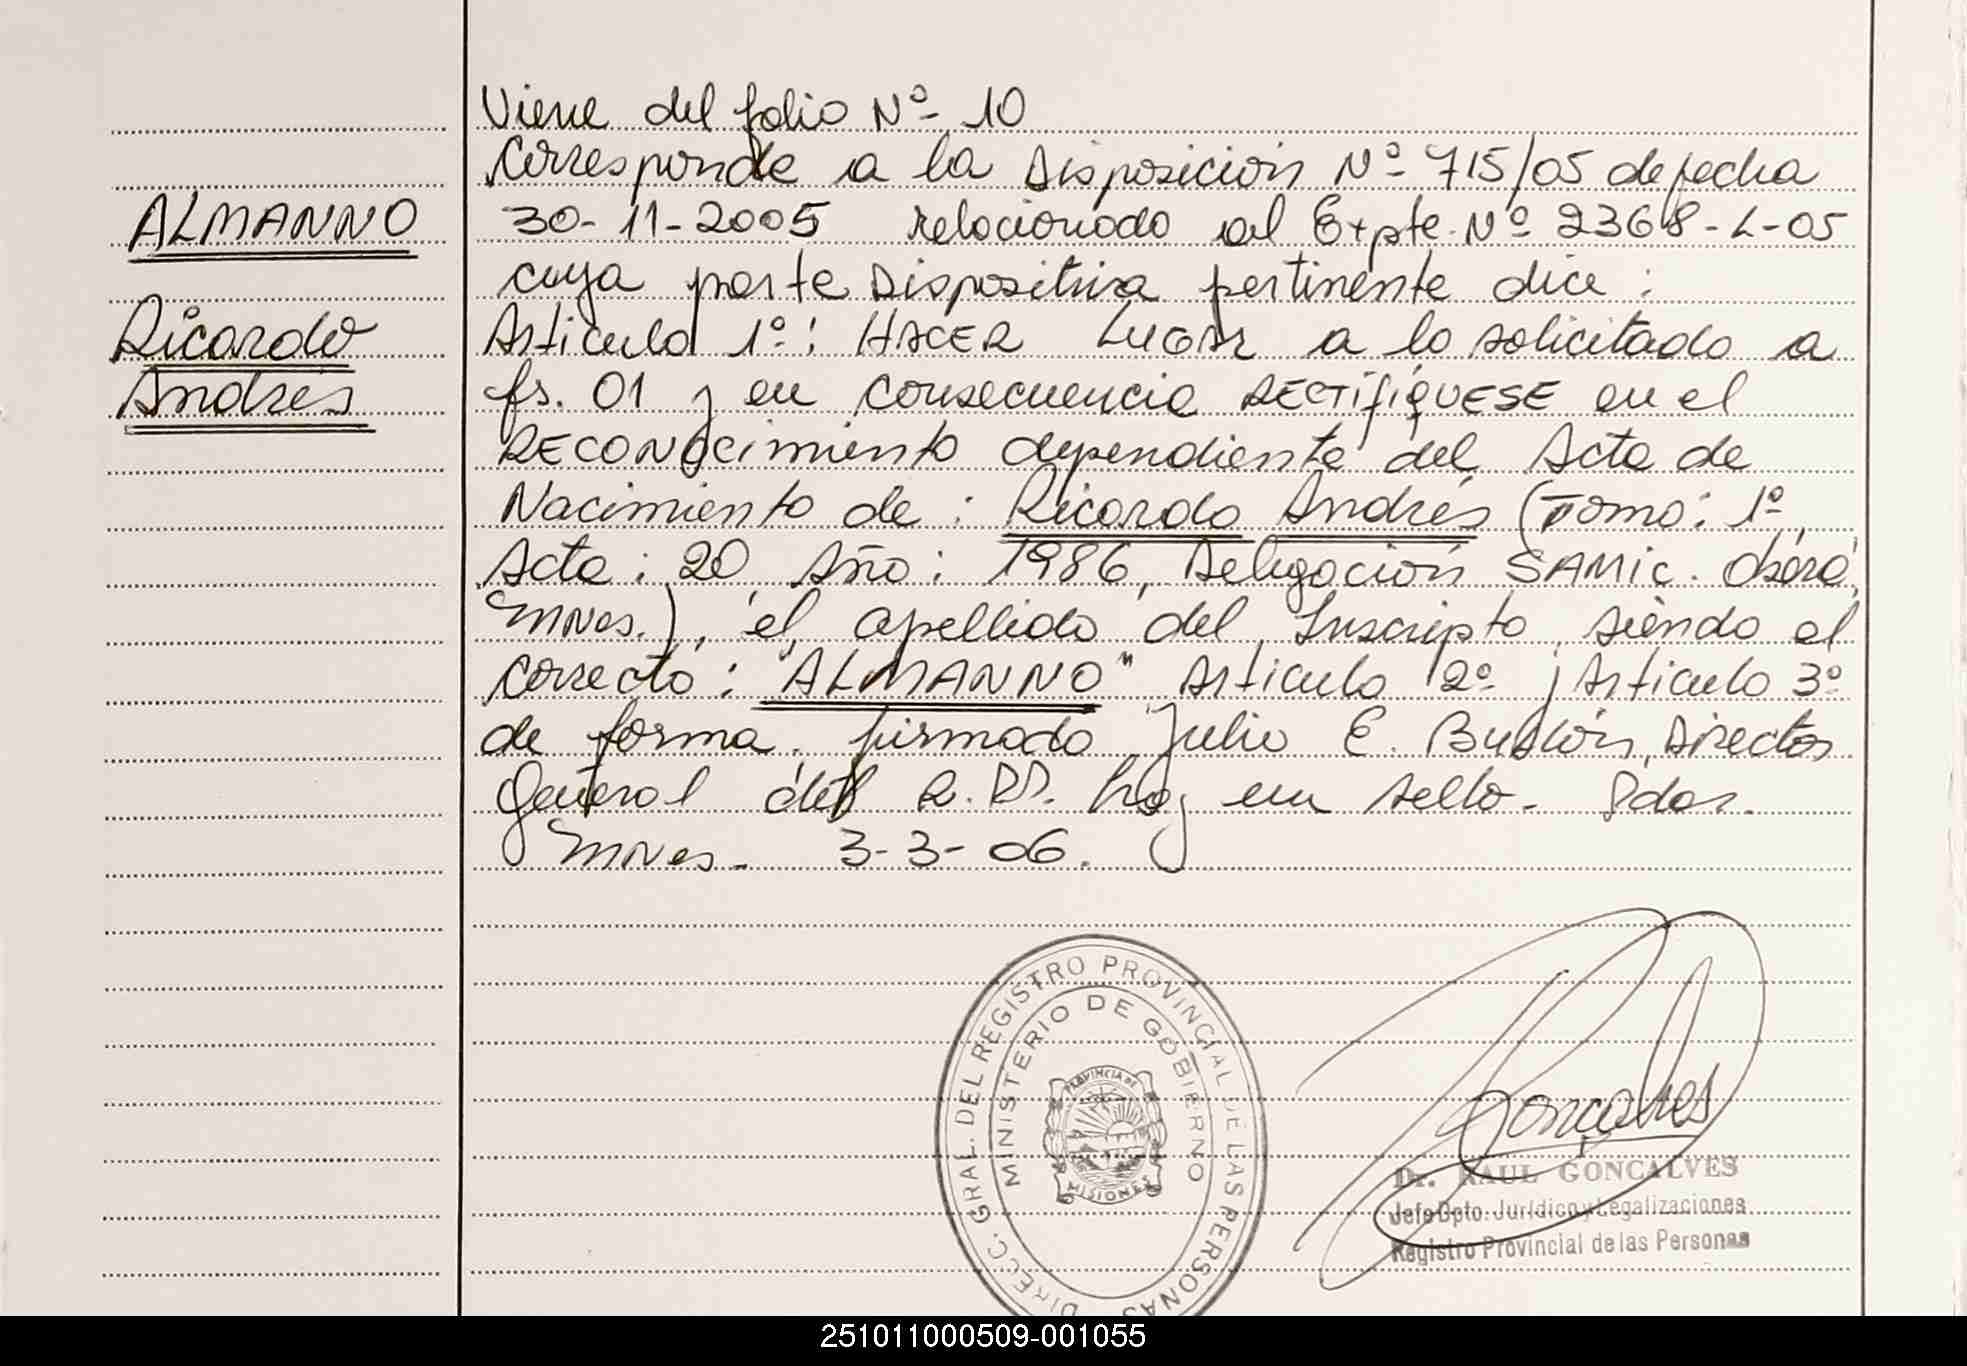 Viene del folio Nº 10
Corresponde a la Disposición Nº 715/05 de fecha
ALMANNO
30-11-2005 relacionado al Expte. Nº 2368-L-05
cuya parte Dispositiva pertinente dice:
Ricardo
Articulo 1º: HACER LUGAR a lo solicitado a
Andrés
fs. 01 y en consecuencia RECTIFIQUESE en el
RECONOcimiento dependiente del Acta de
Nacimiento de: Ricardo Andrés (Tomo: 1º,
Acta: 20 Año: 1986, Delegación SAMIC. Oberá,
Mnes.), el apellido del Inscripto siendo el
correcto: "ALMANNO" Articulo 2º y Articulo 3º
de forma. firmado Julio E. Director
General del R.P.P. hay un sello. Pdas.
Mnes. 3-3-06.
DIRECC. GRAL. DEL REGISTRO PROVINCIAL DE LAS PERSONAS
MINISTERIO DE GOBIERNO
PROVINCIA DE
MISIONES
Goncalves
Dr. RAUL GONCALVES
Jefe Dpto. Jurídico y Legalizaciones
Registro Provincial de las Personas
251011000509-001055